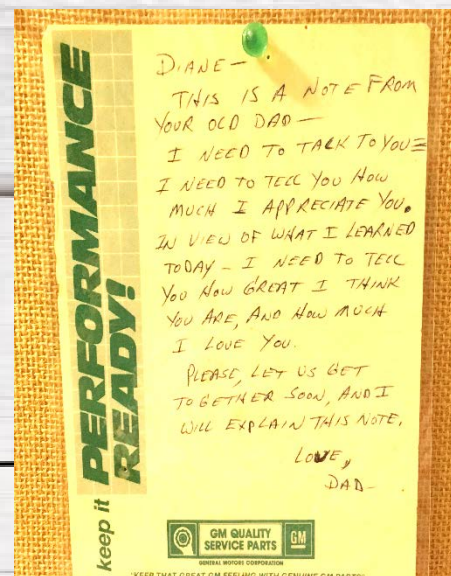 keep it PERFORMANCE
READY!
DIANE—
THIS IS A NOTE FROM
YOUR OLD DAD—
I NEED TO TALK TO YOU—
I NEED TO TELL YOU HOW
MUCH I APPRECIATE YOU.
IN VIEW OF WHAT I LEARNED
TODAY – I NEED TO TELL
YOU HOW GREAT I THINK
YOU ARE, AND HOW MUCH
I LOVE YOU.
PLEASE, LET US GET
TOGETHER SOON, AND I
WILL EXPLAIN THIS NOTE.
LOVE,
DAD—
GM QUALITY
SERVICE PARTS
GM
GENERAL MOTORS CORPORATION
"KEEP THAT GREAT GM FEELING WITH GENUINE GM PARTS"